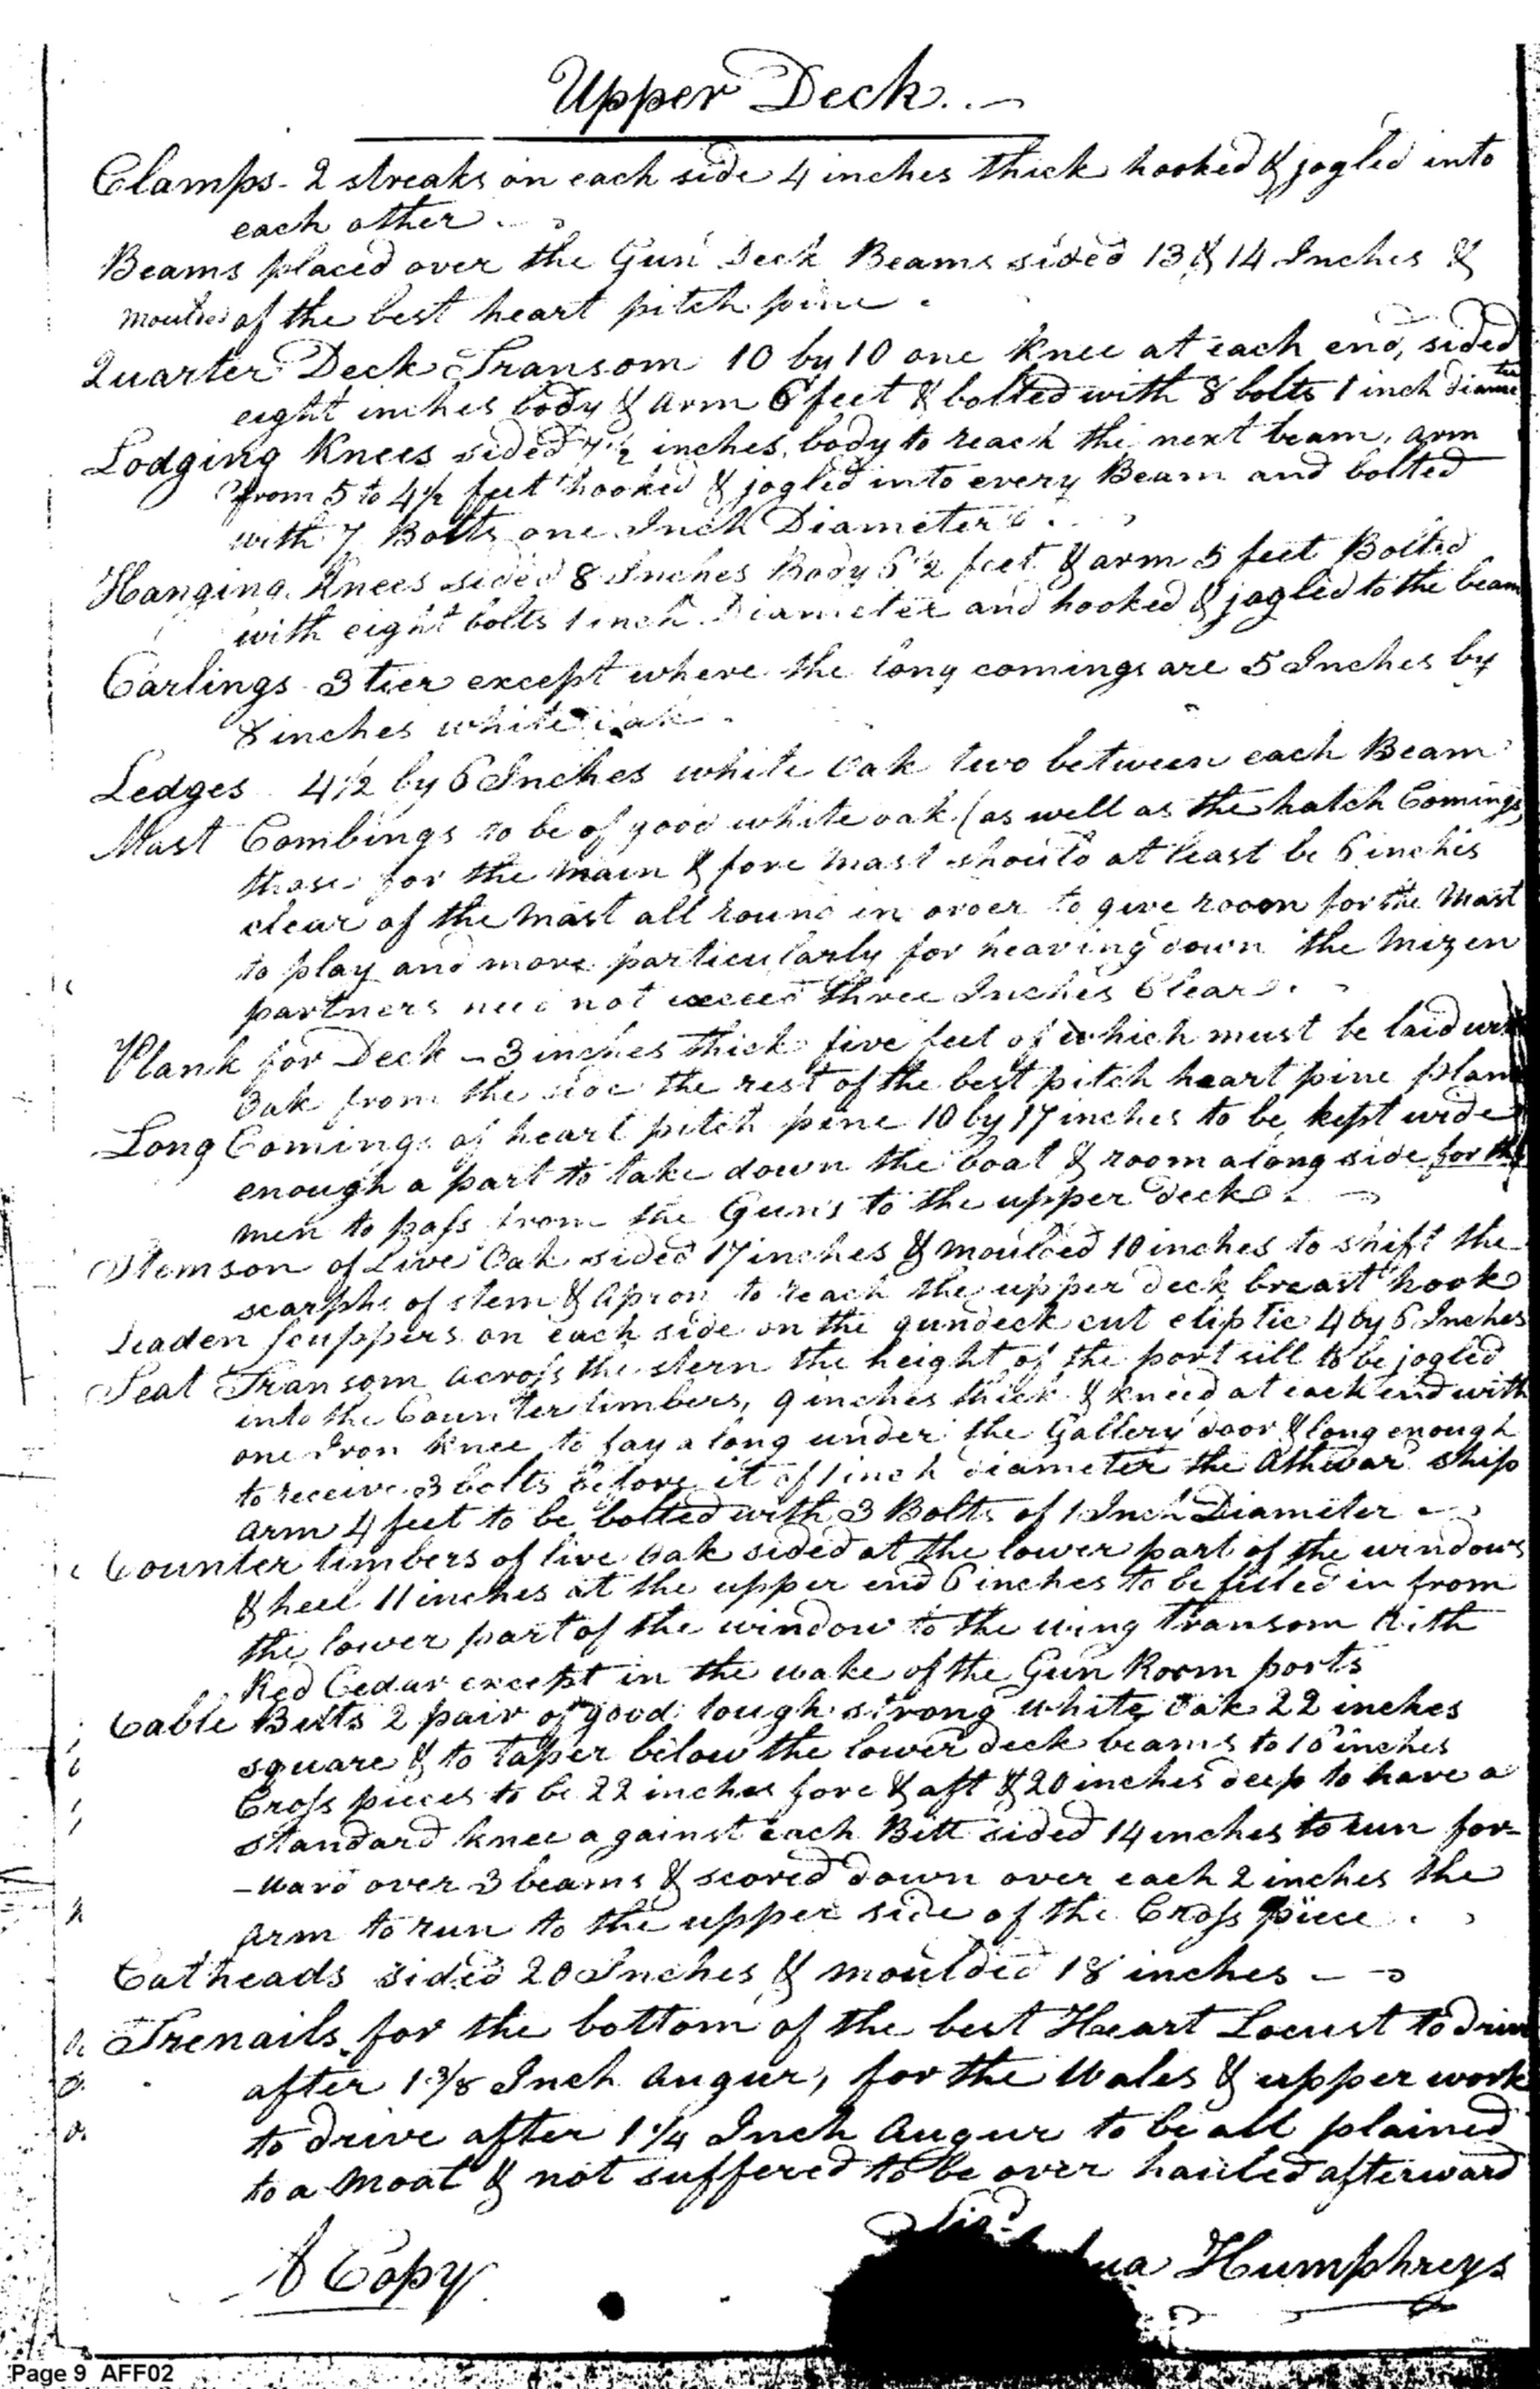 Upper Deck.
Clamps - 2 streaks on each side 4 inches thick hooked & jogled into
each other
Beams placed over the Gun Deck Beams sided 13 & 14 Inches &
moulded of the best heart pitch pine.
Quarter Deck Transom 10 by 10 one Knee at each end, sided
eight inches body & arm 6 feet & bolted with 8 bolts 1 inch diameter
Lodging Knees sided 7 1/2 inches, body to reach the next beam, arm
from 5 to 4 1/2 feet hooked & jogled into every Beam and bolted
with 7 Bolts one Inch Diameter.
Hanging Knees sided 8 Inches Body 6 1/2 feet & arm 5 feet Bolted
with eight bolts 1 inch Diameter and hooked & jogled to the beam
Carlings 3 tier except where the long comings are 5 Inches by
8 inches white oak
Ledges 4 1/2 by 6 Inches white oak two between each Beam
Mast Combings to be of good white oak (as well as the hatch Comings)
those for the main & fore mast should at least be 6 inches
clear of the mast all round in order to give room for the Mast
to play and more particularly for heaving down the Mizen
partners need not exceed three Inches Clear.
Plank for Deck - 3 inches thick five feet of which must be laid
Oak from the side the rest of the best pitch heart pine plank
Long Comings of heart pitch pine 10 by 17 inches to be kept wide
enough a part to take down the boat & room along side for the
men to pass from the Guns to the upper deck.
Stemson of Live Oak sided 17 inches & moulded 10 inches to shift the
scarphs of stem & apron to reach the upper deck breast hook
Leaden scuppers on each side on the gundeck cut eliptic 4 by 6 Inches
Seat Transom across the stern the height of the port sill to be jogled
into the Counter timbers, 9 inches thick & kneed at each end with
one Iron knee to fay along under the Gallery door & long enough
to receive 3 bolts before it of 1 inch diameter the Athwar ship
arm 4 feet to be bolted with 3 Bolts of 1 Inch Diameter
Counter timbers of live oak sided at the lower part of the windows
& heel 11 inches at the upper end 6 inches to be filled in from
the lower part of the window to the wing transom with
Red Cedar except in the wake of the Gun Room ports
Cable Bitts 2 pair of good tough strong white oak 22 inches
square & to taper below the lower deck beams to 16 inches
Cross pieces to be 22 inches fore & aft & 20 inches deep to have a
standard knee against each Bitt sided 14 inches to run for-
-ward over 3 beams & scored down over each 2 inches the
arm to run to the upper side of the Cross piece.
Catheads sided 20 Inches & moulded 18 inches
Trenails for the bottom of the best Heart Locust to drive
after 1 3/8 Inch augur, for the Wales & upper work
to drive after 1 1/4 Inch Augur to be all plained
to a moat & not suffered to be over hauled afterward
Humphreys
A Copy
Page 9 AFF02